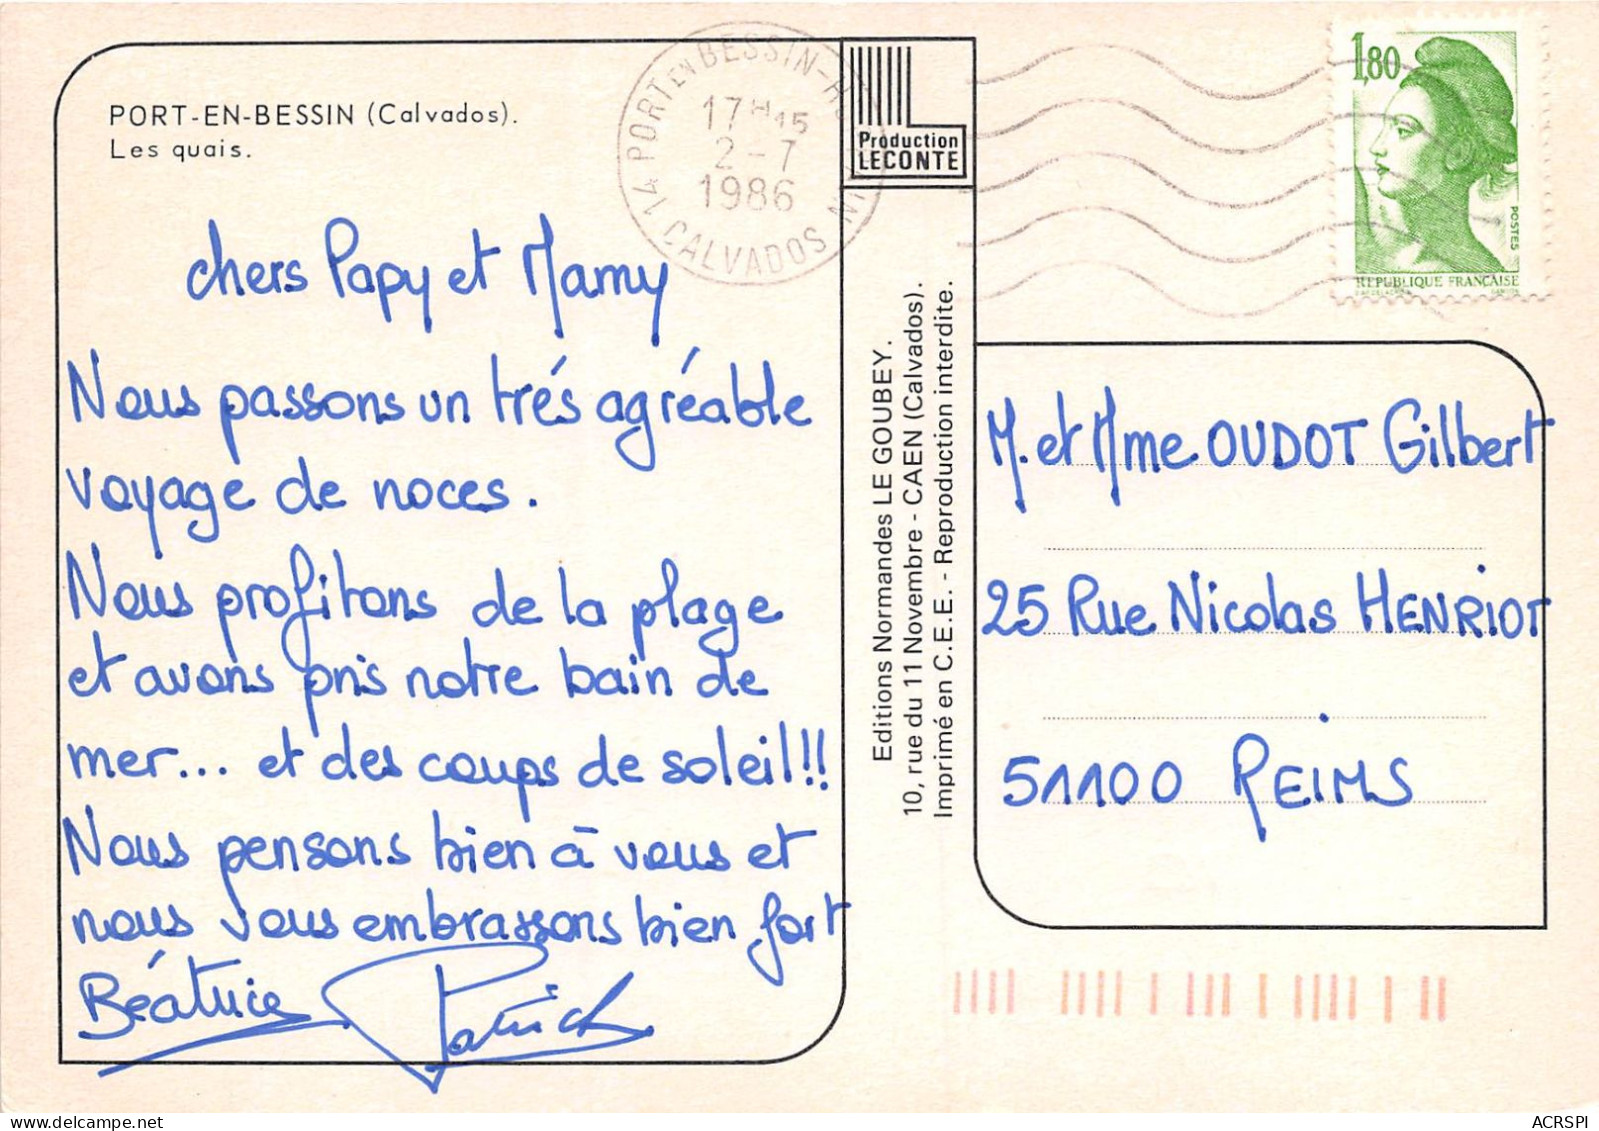 PORT-EN-BESSIN (Calvados).
Les quais.
14 PORT EN BESSIN-HUPPAIN
CALVADOS
17H15
2-7
1986
Production
LECONTE
1,80
POSTES
REPUBLIQUE FRANÇAISE
chers Papy et Mamy
Nous passons un trés agréable
voyage de noces.
Nous profitons de la plage
et avons pris notre bain de
mer... et des coups de soleil!!
Nous pensons bien à vous et
nous vous embrassons bien fort
Béatrice Patrick
Editions Normandes LE GOUBEY.
10, rue du 11 Novembre - CAEN (Calvados).
Imprimé en C.E.E. - Reproduction interdite.
M. et Mme OUDOT Gilbert
25 Rue Nicolas HENRIOT
51100 REIMS
ACRSPI